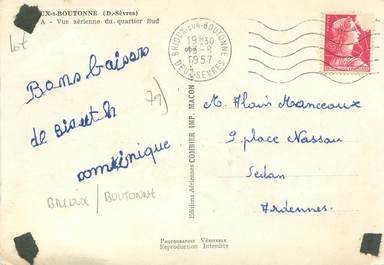 UX-s-BOUTONNE (D.-Sèvres)
A - Vue aérienne du quartier Sud
BRIOUX-SUR-BOUTONNE
19H30
-8
1957
DEUX-SEVRES
Bons baisers
de
Dominique
79
BRIOUX / BOUTONNE
Editions Aériennes COMBIER IMP. MACON
M. Alain Manceaux
9 place Nassau
Sedan
Ardennes.
Photographie Véritable
Reproduction Interdite